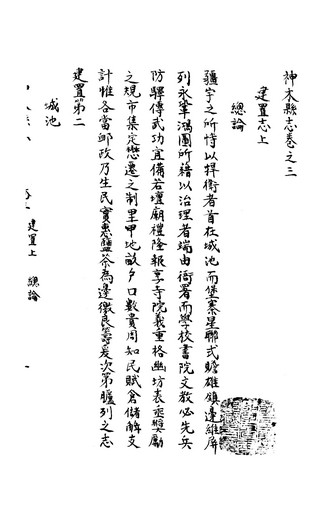 神木縣志卷之三
建置志上
總論
疆宇之所恃以捍衛者首在城池而堡寨星聯式瞻雄鎮邊維屏
列永鞏鴻圖所藉以治理者端由衙署而學校書院文教必先兵
防驛傳武功宜備若壇廟禮隆報享寺院義重格幽坊表示獎勵
之規市集定懋遷之制里甲地畝戶口數貴周知民賦倉儲解支
計惟各當郵政乃生民實惠鹽茶為邊徼良圖爰次第臚列之志
建置第二
城池
建置上 總論
一